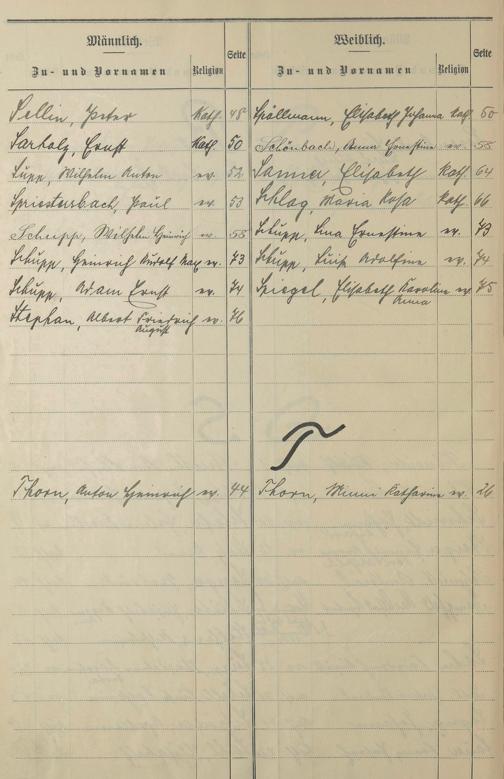 Männlich.
Zu- und Vornamen Religion Seite
Sellin, Peter Kath. 48
Sartoly, Ernst Kath. 50
Supp, Wilhelm Anton ev. 52
Spriestersbach, Paul ev. 53
Schupp, Wilhelm Heinrich ev. 55
Schupp, Heinrich Rudolf Max ev. 73
Schupp, Adam Ernst ev. 74
Stephan, Albert Friedrich ev. 76
August
Weiblich.
Zu- und Vornamen Religion Seite
Spällmann, Elisabeth Johanna Kath. 50
Schönbach, Anna Ernestine ev. 55
Sanner, Elisabeth Kath. 64
Schlag, Maria Rosa Kath. 66
Schupp, Lina Ernestine ev. 73
Schupp, Luise Adolfine ev. 74
Spiegel, Elisabeth Karoline ev. 75
Anna
T
Thorn, Anton Heinrich ev. 44
Thorn, Minni Katharine ev. 26